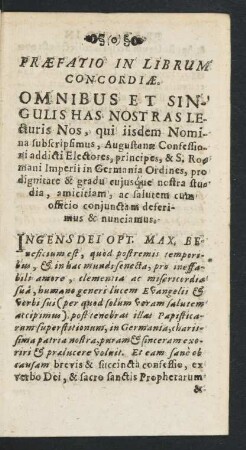 PRÆFATIO IN LIBRUM
CONCORDIÆ.
OMNIBUS ET SIN-
GULIS HAS NOSTRAS LE
cturis Nos, qui iisdem Nomi-
na subscripsimus, Augustanæ Confessio-
ni addicti Electores, principes, & S. Ro-
mani Imperii in Germania Ordines, pro
dignitate & gradu cujusque nostra stu-
dia, amicitiam, ac salutem cum
officio conjunctam deferi-
mus & nunciamus.
INGENS DEI OPT. MAX. BE-
neficium est, quod postremis tempori-
bus, & in hac mundi senecta, pro ineffa-
bili amore, clementia ac misericordia
sua, humano generi lucem Evangelii &
Verbi sui (per quod solum veram salutem
accipimus) post tenebras illas Papistica-
rum superstitionum, in Germania, charis-
sima patria nostra, puram & sinceram exo-
riri & prælucere voluit. Et eam sanè ob
causam brevis & succincta confessio, ex
verbo Dei, & sacro sanctis Prophetarum
&